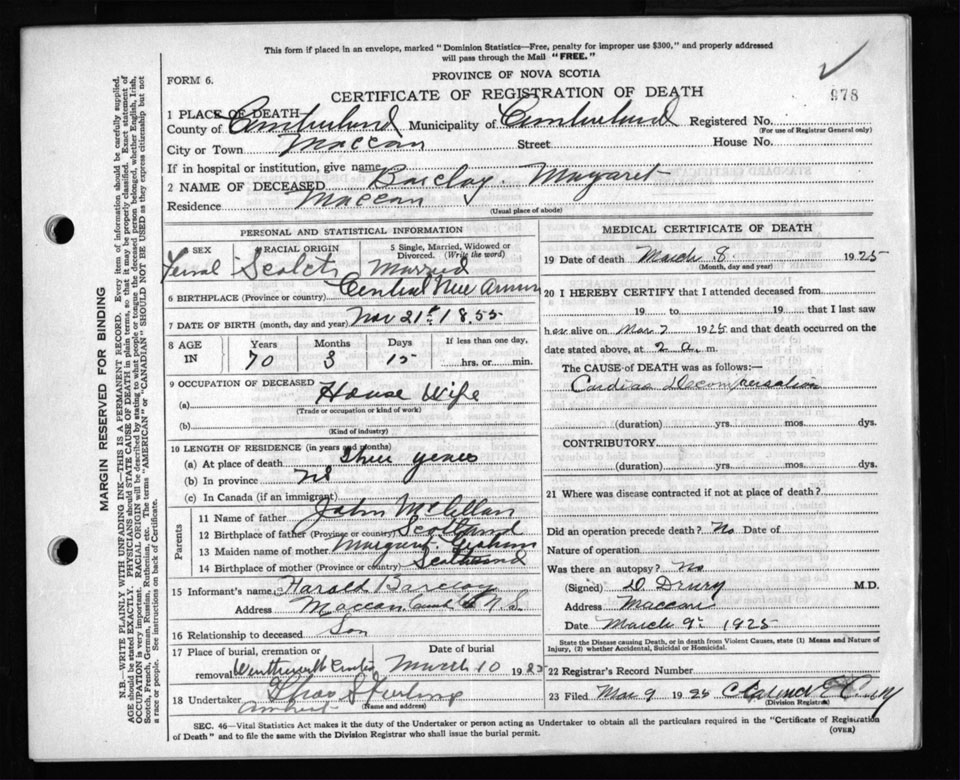 This form if placed in an envelope, marked "Dominion Statistics—Free, penalty for improper use $300," and properly addressed
will pass through the Mail "FREE."
FORM 6.
PROVINCE OF NOVA SCOTIA
CERTIFICATE OF REGISTRATION OF DEATH
978
1 PLACE OF DEATH
County of Cumberland Municipality of Cumberland Registered No.
(For use of Registrar General only)
City or Town Maccan Street House No.
If in hospital or institution, give name
2 NAME OF DECEASED Barclay. Margaret
Residence Maccan
(Usual place of abode)
PERSONAL AND STATISTICAL INFORMATION
SEX RACIAL ORIGIN 5 Single, Married, Widowed or Divorced. (Write the word)
Scotch Married
6 BIRTHPLACE (Province or country) Central New
7 DATE OF BIRTH (month, day and year) Nov 21st 1855
8 AGE IN Years Months Days If less than one day,
70 3 15 hrs. or min.
9 OCCUPATION OF DECEASED
(a) House Wife
(Trade or occupation or kind of work)
(b)
(Kind of industry)
10 LENGTH OF RESIDENCE (in years and months)
(a) At place of death three years
(b) In province NS
(c) In Canada (if an immigrant)
Parents
11 Name of father John McClellan
12 Birthplace of father (Province or country) Scotland
13 Maiden name of mother Margaret
14 Birthplace of mother (Province or country) Scotland
15 Informant's name Harold Barclay
Address Maccan N.S.
16 Relationship to deceased Son
17 Place of burial, cremation or removal Date of burial
March 10 1925
18 Undertaker Sterling
Amherst (Name and address)
MEDICAL CERTIFICATE OF DEATH
19 Date of death March 8 1925
(Month, day and year)
20 I HEREBY CERTIFY that I attended deceased from
19 to 19 that I last saw
her alive on Mar 7 1925 and that death occurred on the
date stated above, at 2 a. m.
The CAUSE of DEATH was as follows:—
Cardiac Decompensation
(duration) yrs. mos. dys.
CONTRIBUTORY
(duration) yrs. mos. dys.
21 Where was disease contracted if not at place of death?
Did an operation precede death? No Date of
Nature of operation
Was there an autopsy? No
(Signed) D. Drury M.D.
Address Maccan
Date March 9th 1925
State the Disease causing Death, or in death from Violent Causes, state (1) Means and Nature of
Injury, (2) whether Accidental, Suicidal or Homicidal.
22 Registrar's Record Number
23 Filed Mar 9 1925 Clarence E
(Division Registrar)
SEC. 46—Vital Statistics Act makes it the duty of the Undertaker or person acting as Undertaker to obtain all the particulars required in the "Certificate of Registration
of Death" and to file the same with the Division Registrar who shall issue the burial permit.
(OVER)
MARGIN RESERVED FOR BINDING
N.B.—WRITE PLAINLY WITH UNFADING INK—THIS IS A PERMANENT RECORD. Every item of information should be carefully supplied.
AGE should be stated EXACTLY. PHYSICIANS should STATE CAUSE OF DEATH in plain terms, so that it may be properly classified. Exact statement of
OCCUPATION is very important. RACIAL ORIGIN will be described by stating to what people or tongue the deceased person belonged, whether English, Irish,
Scotch, French, German, Russian, Ruthenian, etc. The terms "AMERICAN" or "CANADIAN" SHOULD NOT BE USED as they express citizenship but not
a race or people. See instructions on back of Certificate.